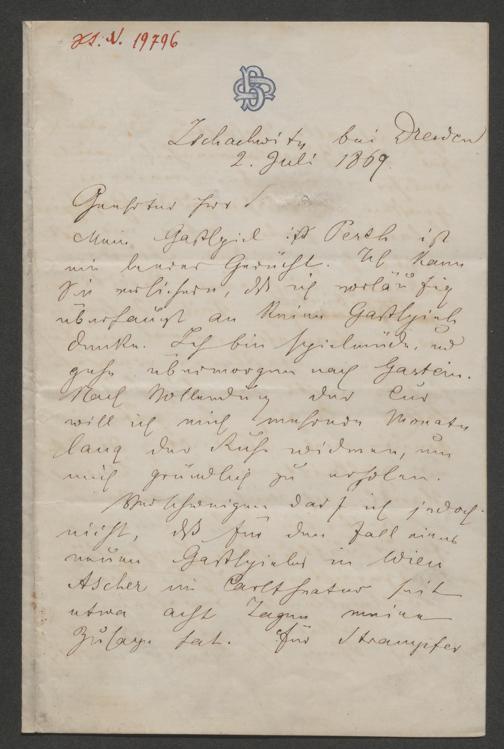 H.I.N. 19796
Zschachwitz bei Dresden
2. Juli 1869
Geehrter Herr
Mein Gastspiel in Pesth ist
ein leeres Gerücht. Ich kann
Sie versichern, dß ich vorläufig
überhaupt an keine Gastspiele
denke. Ich bin spielmüde, und
gehe übermorgen nach Gastein.
Nach Vollendung der Cur
will ich mich mehrere Monate
lang der Ruhe widmen, um
mich gründlich zu erholen.
Verschweigen darf ich jedoch
nicht, dß für den Fall eines
neuen Gastspieles in Wien
Ascher im Carltheater seit
etwa acht Tagen meine
Zusage hat. Für Strampfer